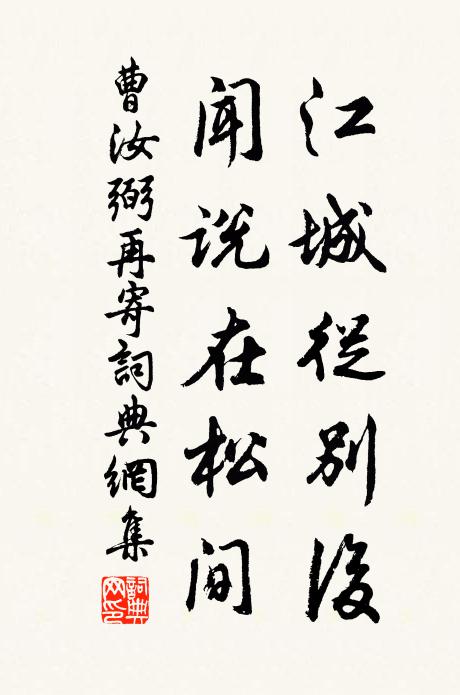 江城從別後
聞説在松間
曹汝弼再寄詞典網集
詞典網印